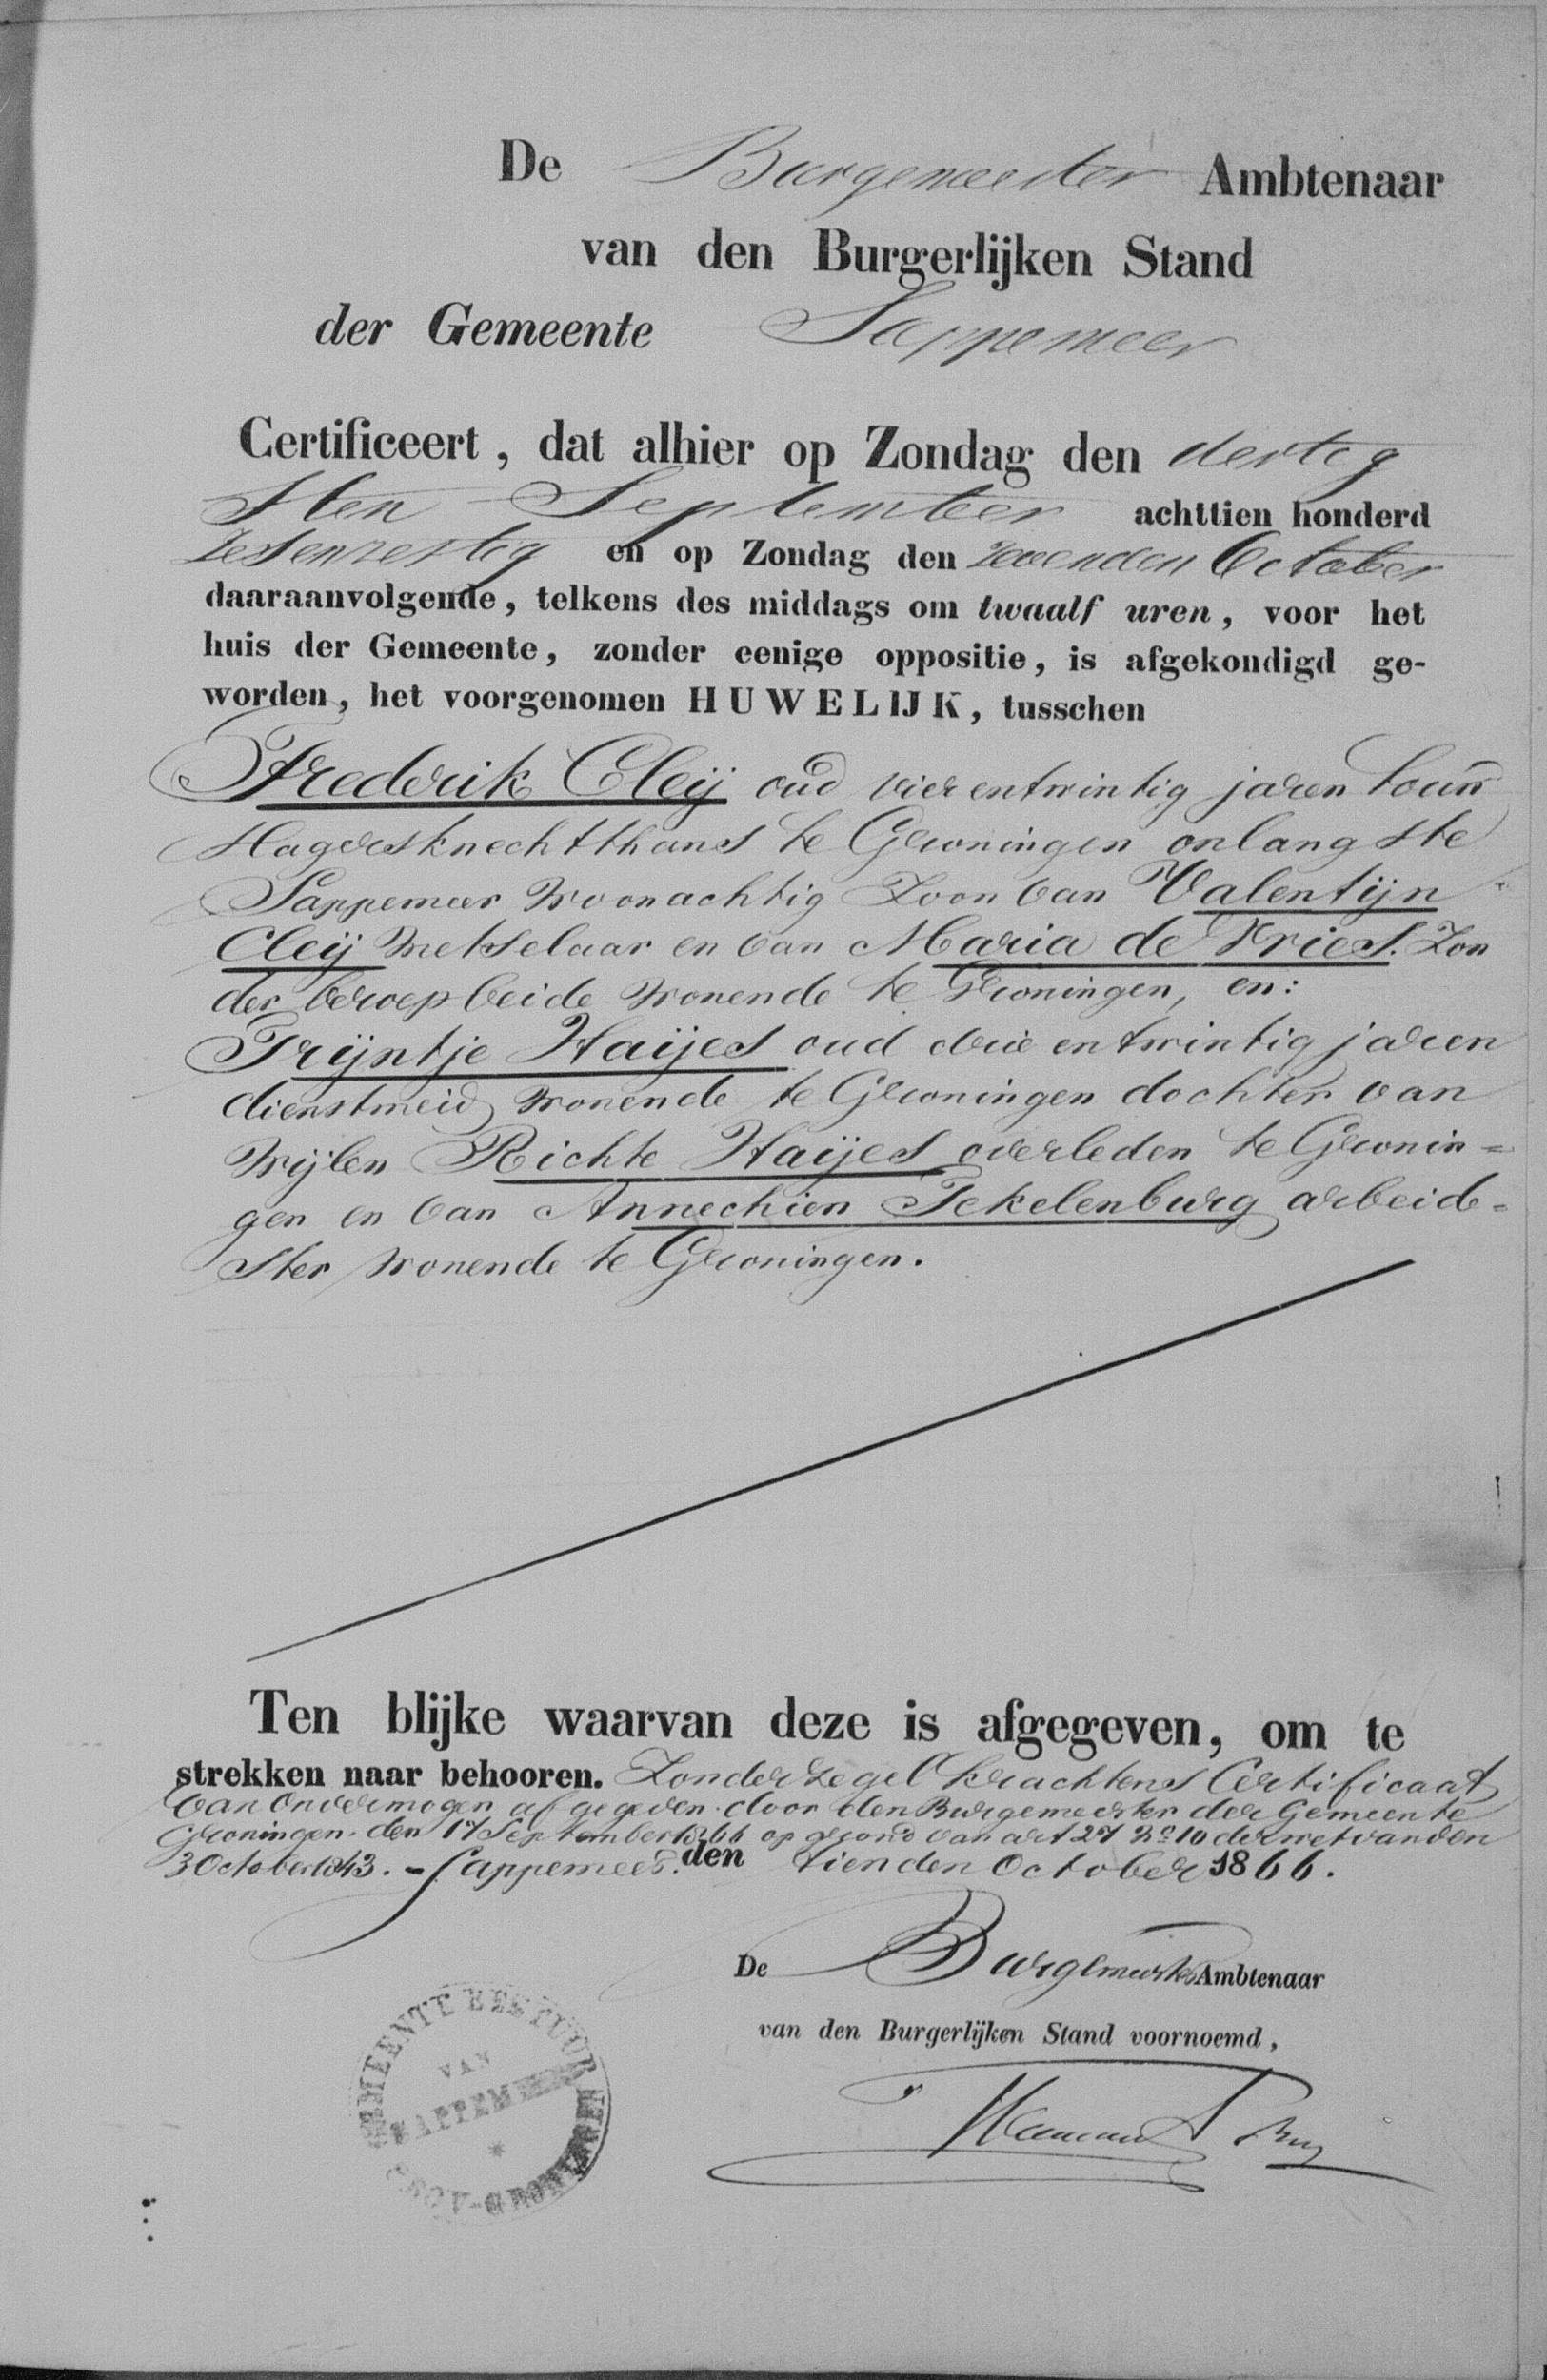 De Burgemeester Ambtenaar
van den Burgerlijken Stand
der Gemeente Sappemeer
Certificeert, dat alhier op Zondag den dertig
sten September achttien honderd
zesenzestig en op Zondag den zevenden October
daaraanvolgende, telkens des middags om twaalf uren, voor het
huis der Gemeente, zonder eenige oppositie, is afgekondigd ge-
worden, het voorgenomen HUWELIJK, tusschen
Frederik Cleij oud vierentwintig jaren
Slagersknecht thans te Groningen onlangs te
Sappemeer woonachtig Zoon van Valentijn
Cleij metselaar en van Maria de Vries. Zon
der beroep beide wonende te Groningen, en:
Trijntje Haijes oud drie entwintig jaren
dienstmeid wonende te Groningen dochter van
wijlen Richte Haijes overleden te Gronin=
gen en van Annechien Tekelenburg arbeid=
ster wonende te Groningen.
Ten blijke waarvan deze is afgegeven, om te
strekken naar behooren. Zonder zegel krachtens Certificaat
van onvermogen afgegeven door den Burgemeester der Gemeente
Groningen den 17 September 1866 op grond van art 27 No 10 der wet van den
3 October 1843. - Sappemeer den tienden October 1866.
De Burgemeester Ambtenaar
van den Burgerlijken Stand voornoemd,
GEMEENTE BESTUUR
VAN
SAPPEMEER
*
PROV. GRONINGEN